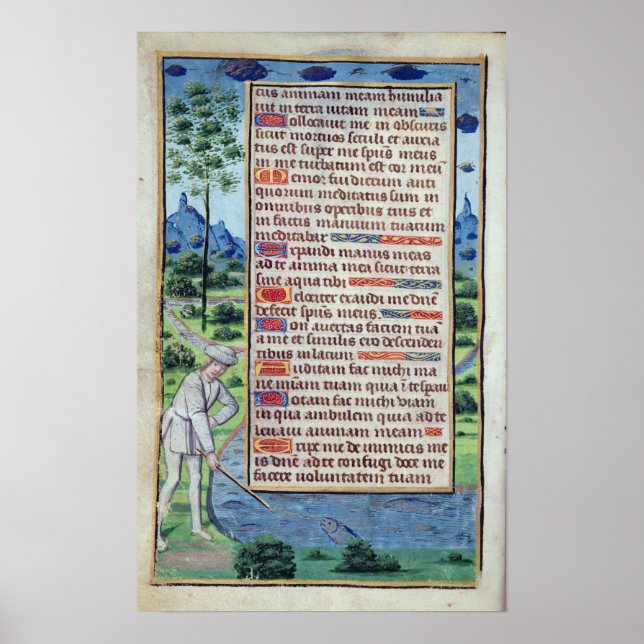 cus animam meam humilia
uit in terra uitam meam
Collocauit me in obscuris
sicut mortuos seculi et anxia
tus est super me spūs meus
in me turbatum est cor meū
Memor fui dierum anti
quorum meditatus sum in
omnibus operibus tuis et
in factis manuum tuarum
meditabar
Expandi manus meas
ad te anima mea sicut terra
sine aqua tibi
Velociter exaudi me dnē
defecit spūs meus
Non auertas faciem tuā
me et similis ero descenden
tibus in lacum
Auditam fac michi ma
ne miām tuam quia ī te sp̄aui
Notam fac michi uiam
in qua ambulem quia ad te
leuaui animam meam
Eripe me de inimicis me
is dnē ad te confugi doce me
facere uoluntatem tuam